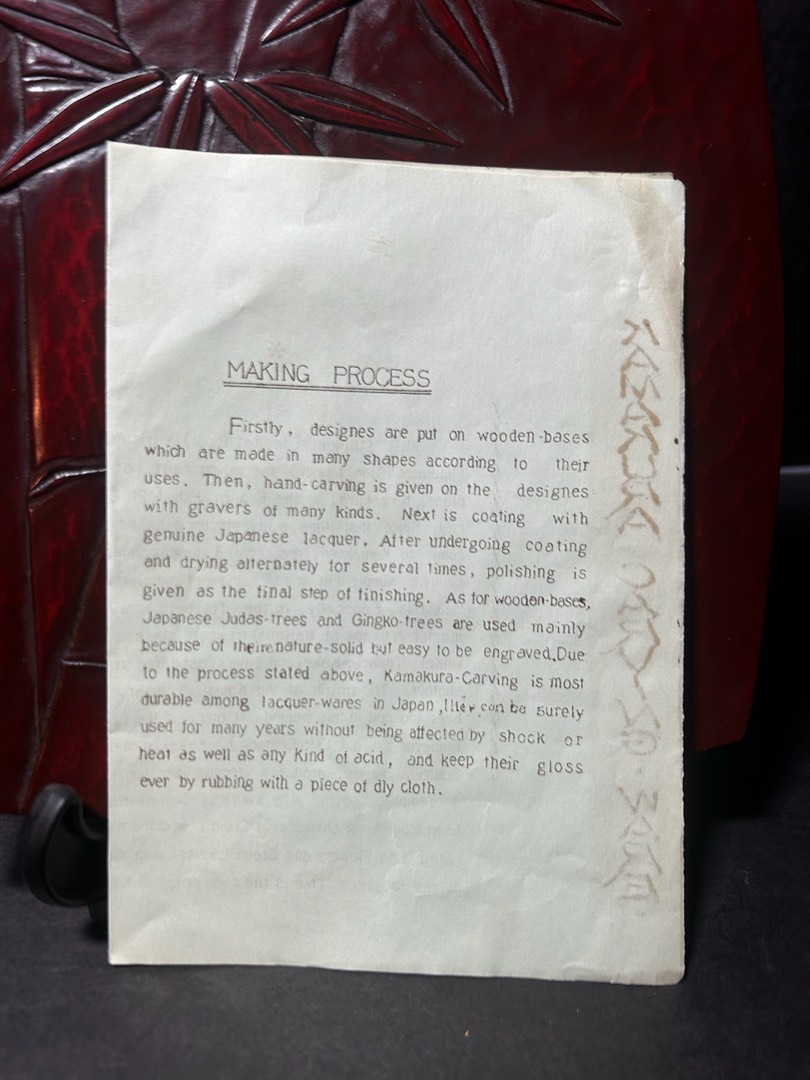 MAKING PROCESS
Firstly, designes are put on wooden-bases
which are made in many shapes according to their
uses. Then, hand-carving is given on the designes
with gravers of many kinds. Next is coating with
genuine Japanese lacquer. After undergoing coating
and drying alternately for several times, polishing is
given as the final step of finishing. As for wooden-bases,
Japanese Judas-trees and Gingko-trees are used mainly
because of their nature-solid but easy to be engraved. Due
to the process stated above, Kamakura-Carving is most
durable among lacquer-wares in Japan, they can be surely
used for many years without being affected by shock or
heat as well as any kind of acid, and keep their gloss
ever by rubbing with a piece of dly cloth.